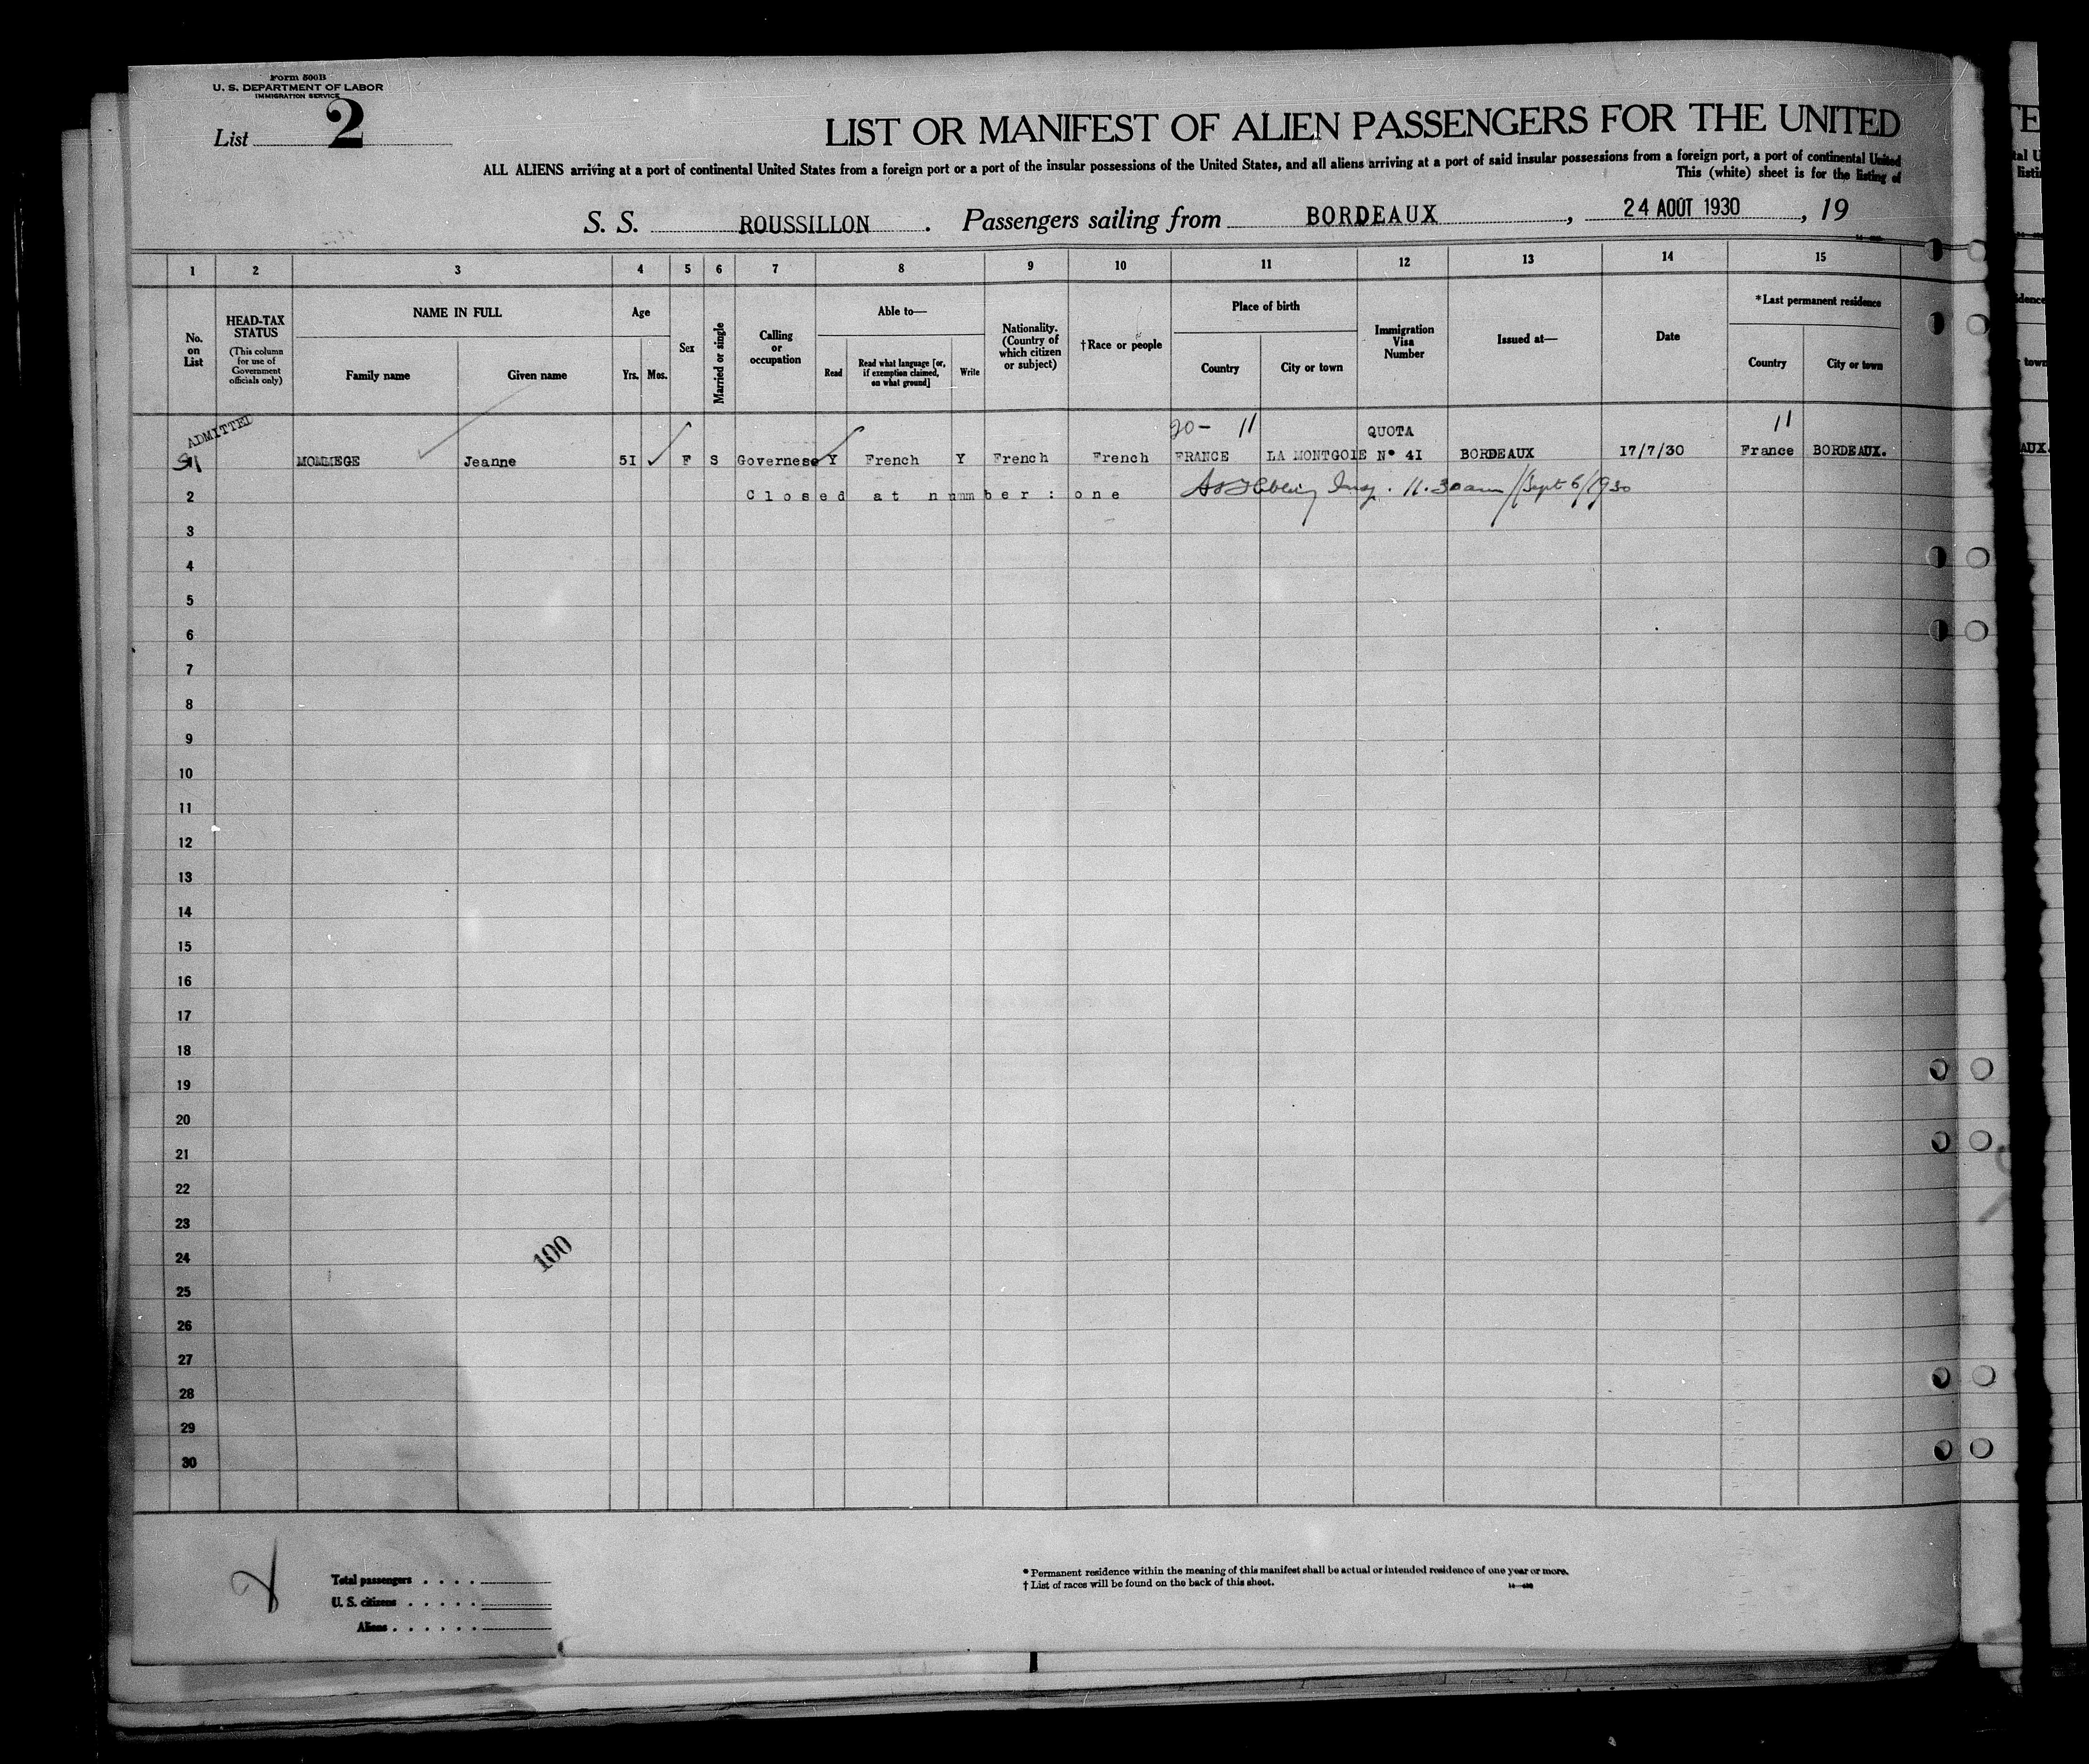 Form 500B
U. S. DEPARTMENT OF LABOR
IMMIGRATION SERVICE
List 2
LIST OR MANIFEST OF ALIEN PASSENGERS FOR THE UNITED
ALL ALIENS arriving at a port of continental United States from a foreign port or a port of the insular possessions of the United States, and all aliens arriving at a port of said insular possessions from a foreign port, a port of continental United
This (white) sheet is for the listing of
S. S. ROUSSILLON . Passengers sailing from BORDEAUX , 24 AOUT 1930 , 19
1 2 3 4 5 6 7 8 9 10 11 12 13 14 15
No. on List
HEAD-TAX STATUS
(This column for use of Government officials only)
NAME IN FULL
Family name Given name
Age
Yrs. Mos.
Sex
Married or single
Calling or occupation
Able to—
Read
Read what language [or, if exemption claimed, on what ground]
Write
Nationality. (Country of which citizen or subject)
†Race or people
Place of birth
Country City or town
Immigration Visa Number
Issued at—
Date
*Last permanent residence
Country City or town
ADMITTED
20- 11 QUOTA 11
MOMMEGE Jeanne 51 F S Governess Y French Y French French FRANCE LA MONTGOIE N° 41 BORDEAUX 17/7/30 France BORDEAUX.
2 Closed at number : one Insp. 11.30am Sept 6/1930
3
4
5
6
7
8
9
10
11
12
13
14
15
16
17
18
19
20
21
22
23
24
25
26
27
28
29
30
100
Total passengers
U. S. citizens
Aliens
* Permanent residence within the meaning of this manifest shall be actual or intended residence of one year or more.
† List of races will be found on the back of this sheet.